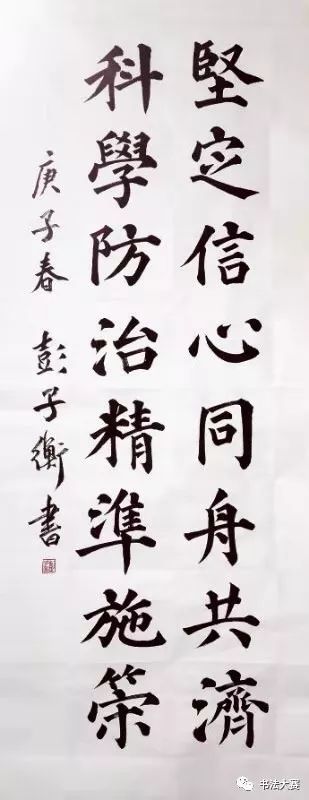 堅定信心同舟共濟
科學防治精準施策
庚子春 彭子衡書
书法大赛